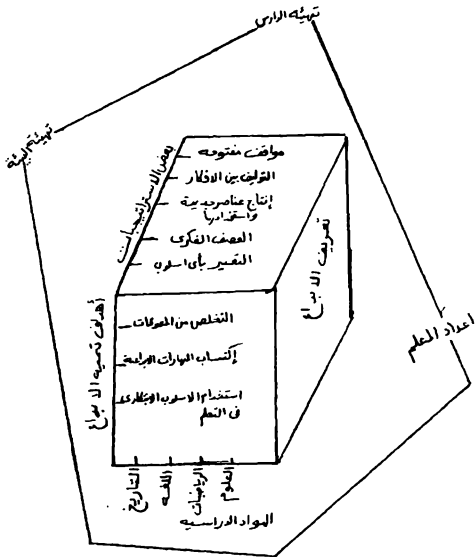 تهيئة الدارس
تهيئة البيئة
بعض الاستراتيجيات
مواقف مفتوحه
التوليف بين الافكار
إنتاج عناصر جديدة
واستخدامها
العصف الفكرى
التعبير بأى اسلوب
تعريف الابداع
أهداف تنمية الابداع
التخلص من المعوقات
إكتساب المهارات الابداعية
استخدام الاسلوب الابتكارى
فى التعلم
اعداد المعلم
التاريخ
اللغه
الرياضيات
العلوم
المواد الدراسيه